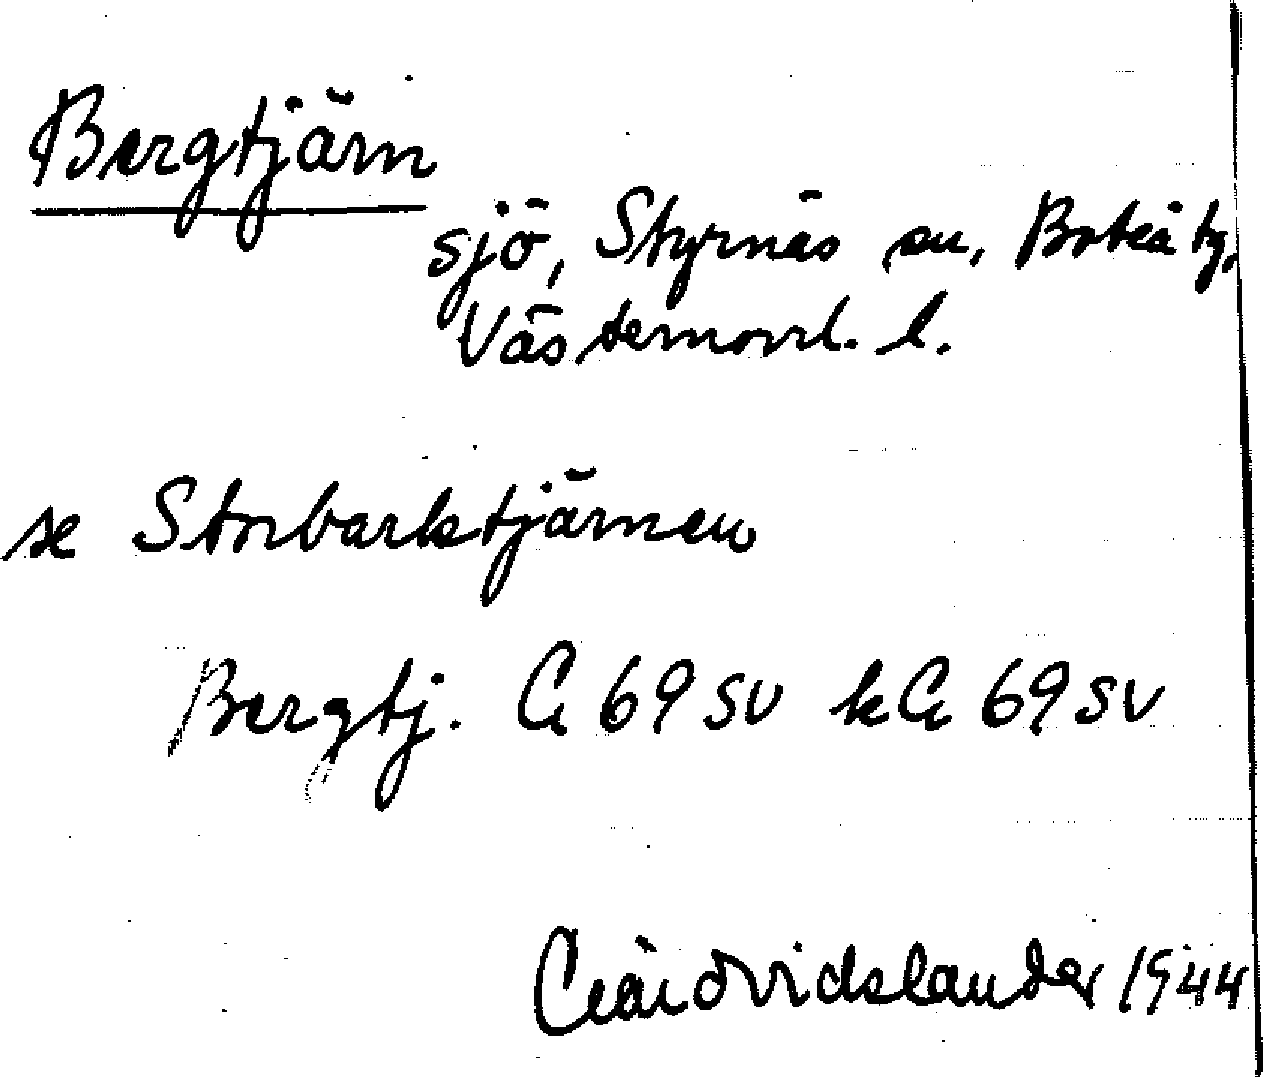 Bergtjärn
sjö, Styrnäs sn, Boteå tg,
Västernorrl. l.
se Storbarktjärnen
Bergtj. Ca 69 SV kCa 69 SV
1944